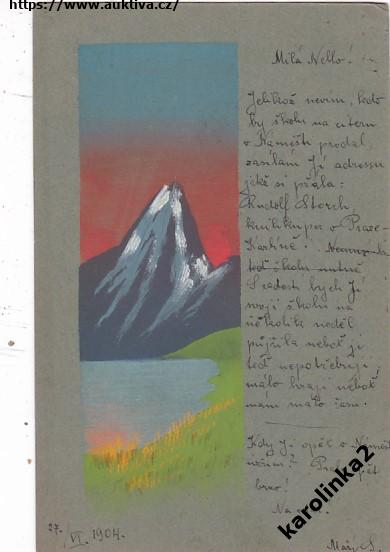 https://www.auktiva.cz/
Milá Nello!
Jelikož nevím, kdo
by školu na citeru
v Náměšti prodal,
zasílám Jí adressu
jaké si přála:
Rudolf Storch
knihkupec v Praze
Karlíně!
teď školu nutně
S radostí bych Jí
svoji školu na
několik neděl
půjčila neboť ji
teď nepotřebuji,
málo hraji neboť
mám málo času.
Kdy Ji opět v Náměšti
uvidím?
brzo!
Na
27. VI. 1904.
karolinka2